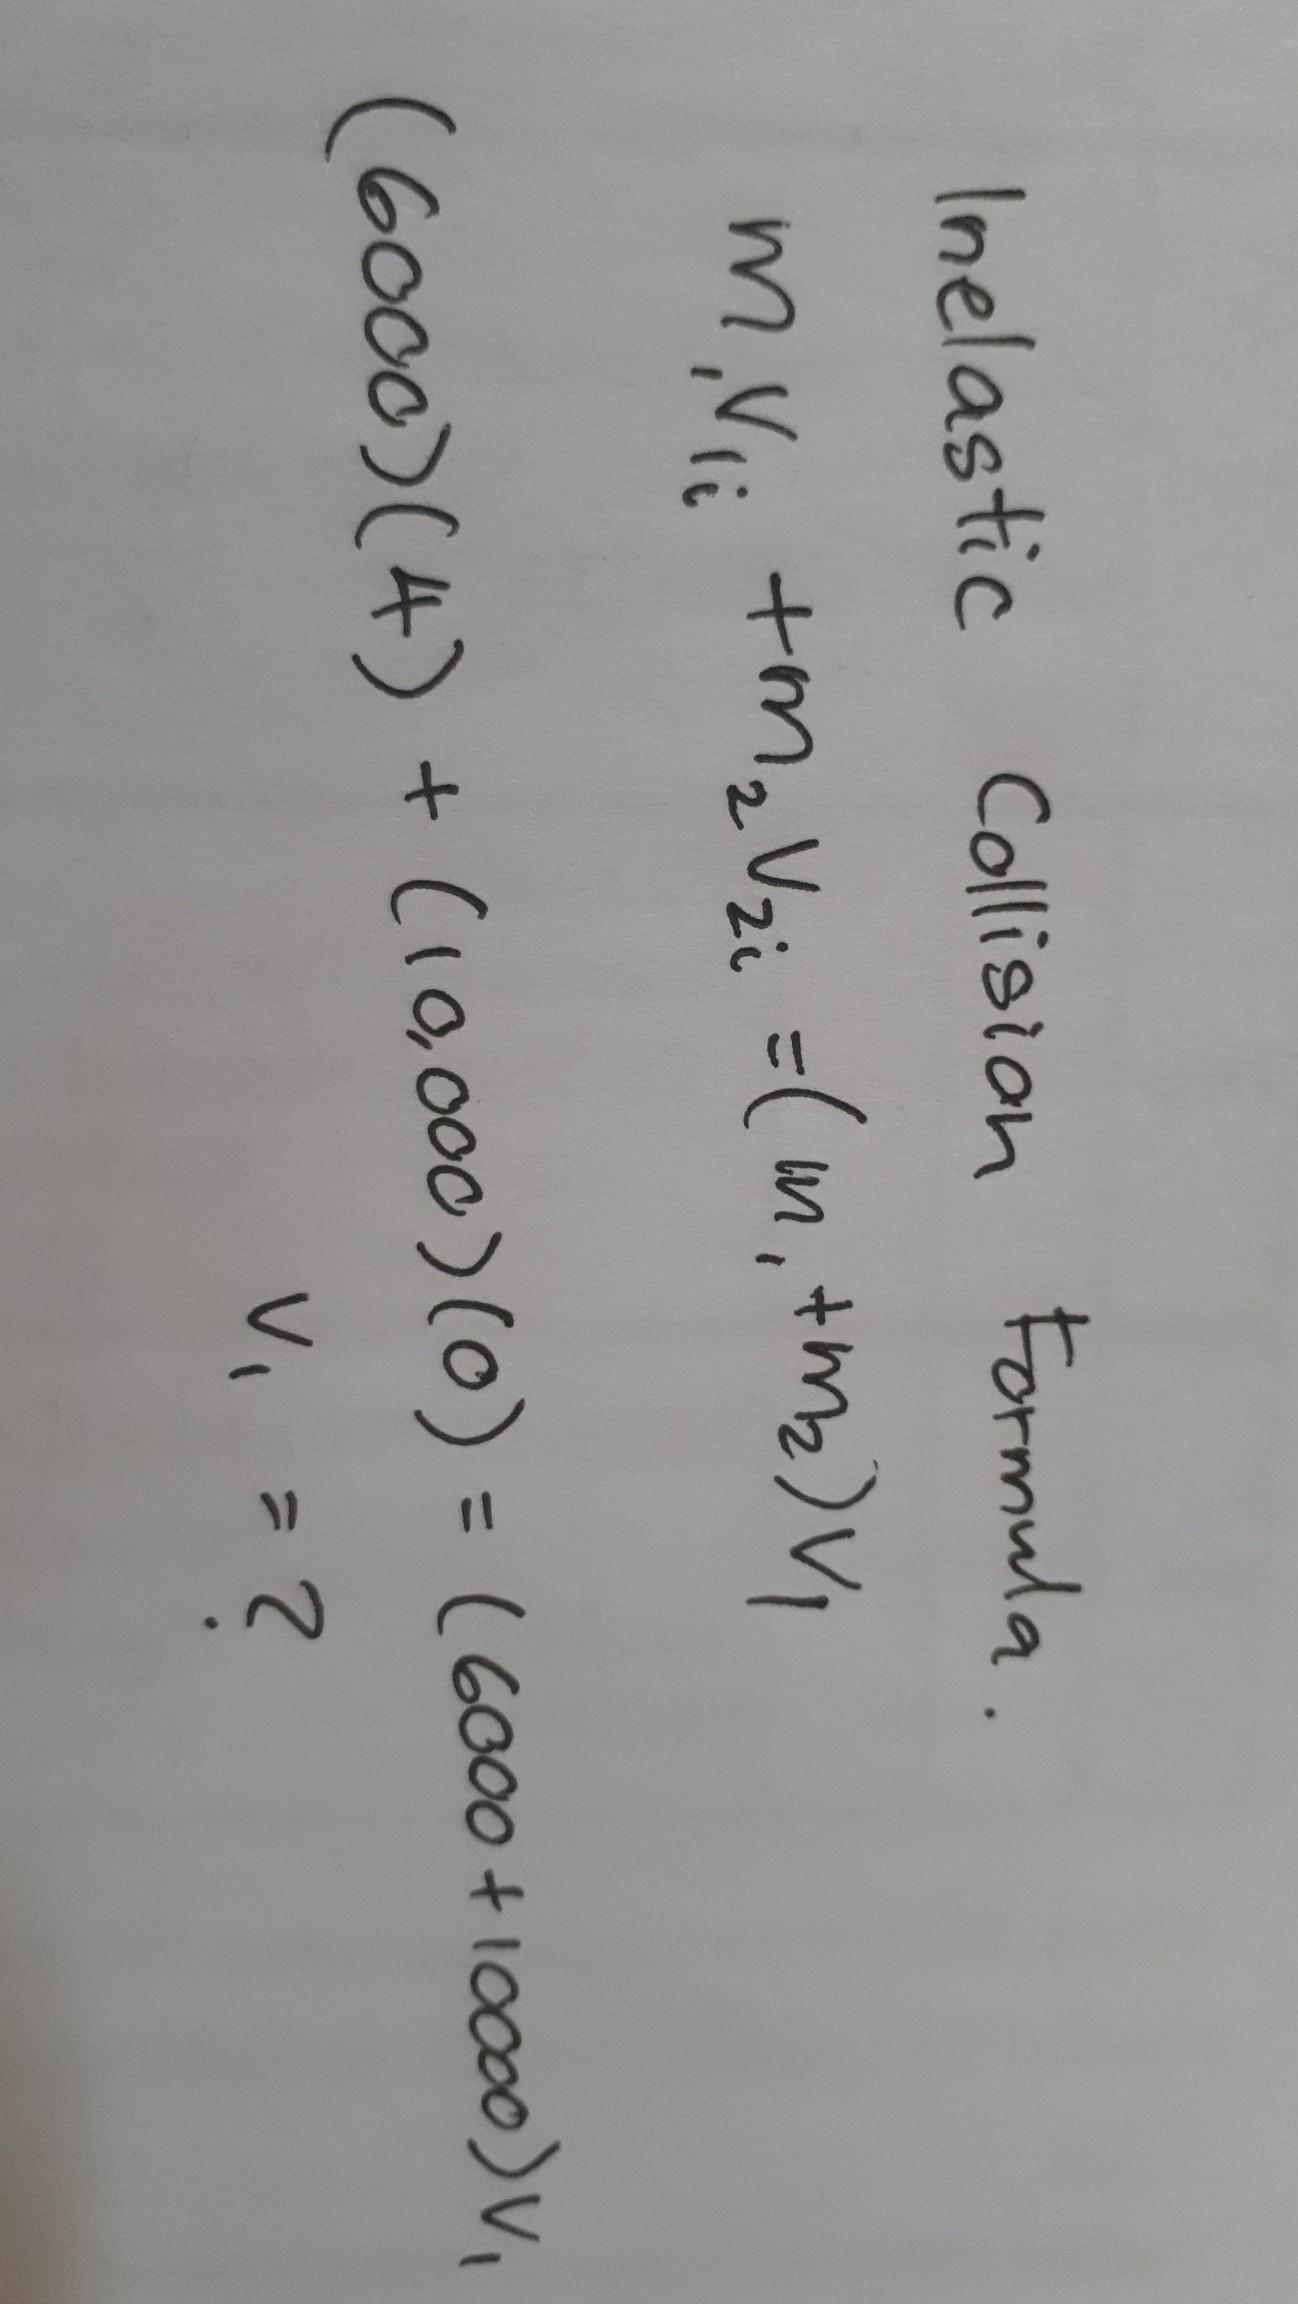 Inelastic Collision Formula.
m₁v₁ᵢ + m₂v₂ᵢ = (m₁ + m₂)v₁
(6000)(4) + (10,000)(0) = (6000 + 10000)v₁
v₁ = ?